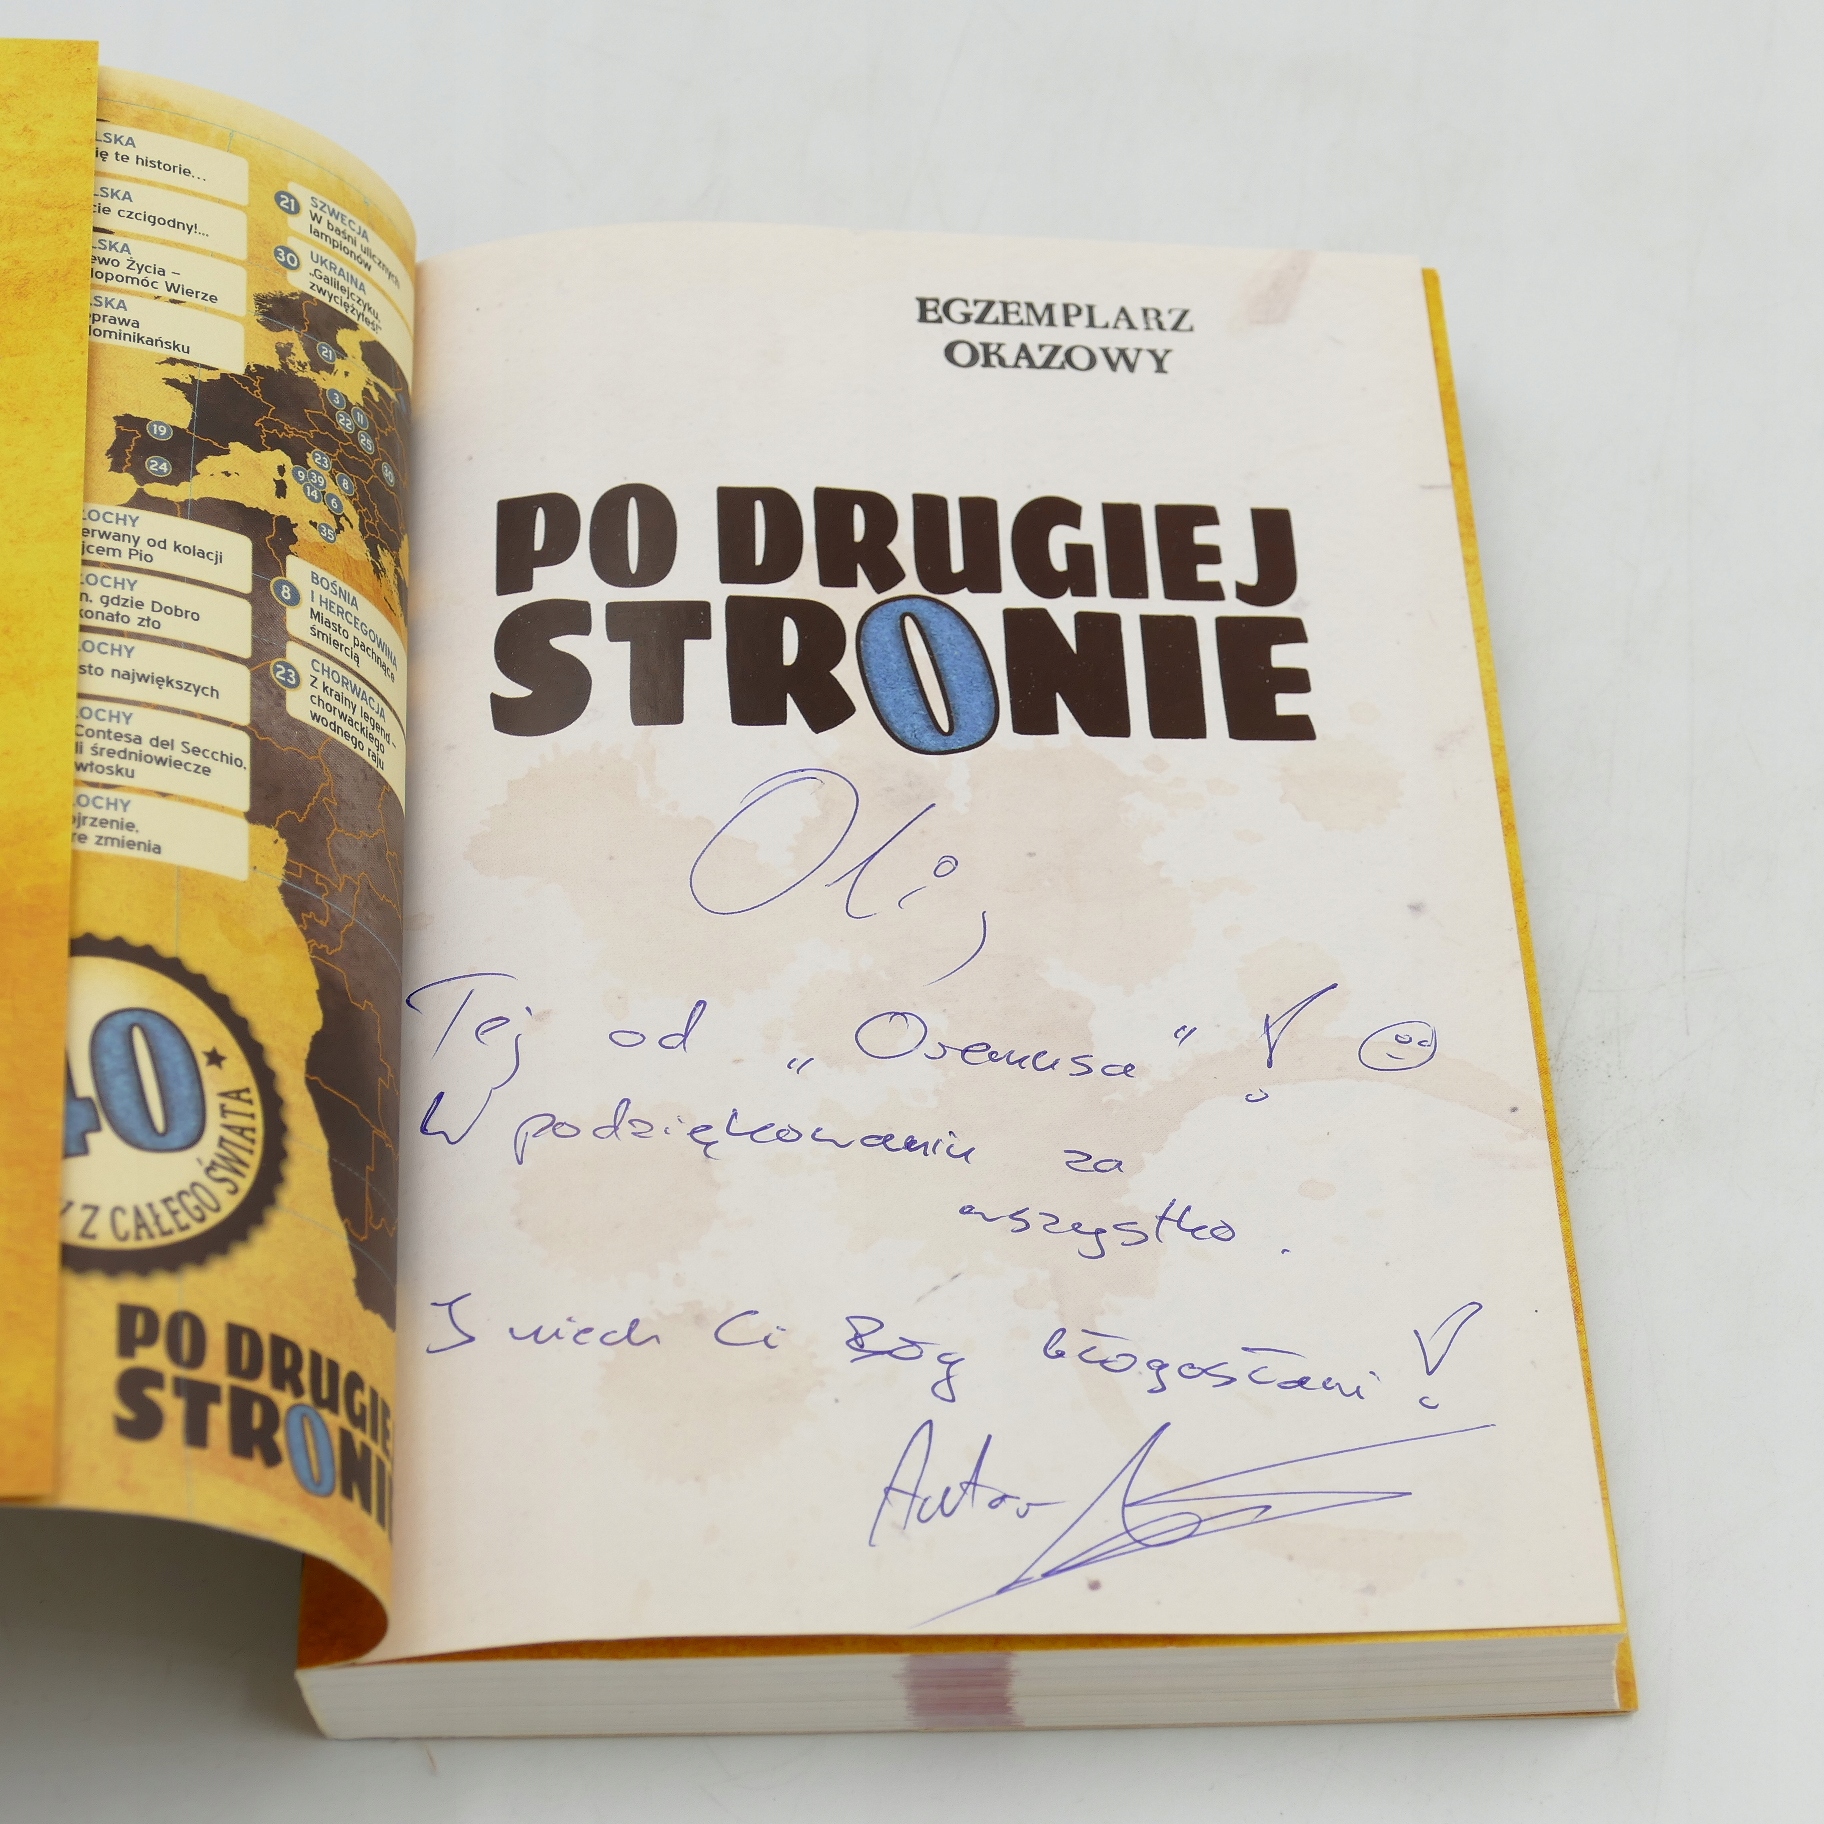 LSKA
ię te historie...
LSKA
cie czcigodny!...
LSKA
ewo Życia –
dopomóc Wierze
LSKA
prawa
dominikańsku
21 SZWECJA
W baśni ulicznych
lampionów
30 UKRAINA
„Galilejczyku,
zwyciężyłeś!”
21
3
11
22
25
19
24
23
9
39
8
14
6
30
35
ŁOCHY
erwany od kolacji
jcem Pio
ŁOCHY
n. gdzie Dobro
konało zło
ŁOCHY
sto największych
ŁOCHY
Contesa del Secchio,
li średniowiecze
włosku
ŁOCHY
ojrzenie,
re zmienia
8 BOŚNIA
I HERCEGOWINA
Miasto pachnące
śmiercią
23 CHORWACJA
Z krainy legend –
chorwackiego
wodnego raju
40
Z CAŁEGO ŚWIATA
PO DRUGIE
STRONI
EGZEMPLARZ
OKAZOWY
PO DRUGIEJ
STRONIE
Oli,
Tej od „Oremusa” !
W podziękowaniu za
wszystko.
I niech Ci Bóg błogosławi!
Autor